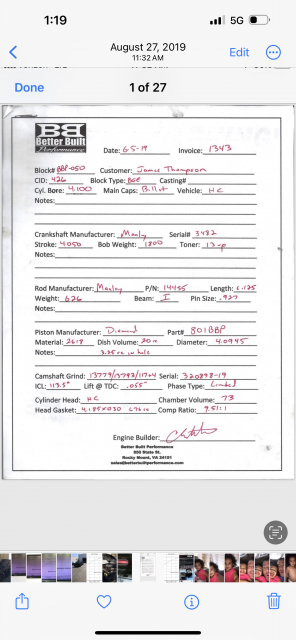 1:19 5G
August 27, 2019
11:32 AM
Edit
Done 1 of 27
BB
Better Built
Performance
Date: 6-5-19 Invoice: 1343
Block# BBP-050 Customer: James Thompson
CID: 426 Block Type: BGE Casting#
Cyl. Bore: 4.100 Main Caps: Billet Vehicle: HC
Notes:
Crankshaft Manufacturer: Manley Serial# 3482
Stroke: 4.050 Bob Weight: 1800 Toner:
Notes:
Rod Manufacturer: Manley P/N: 14455 Length: 6.125
Weight: 626 Beam: I Pin Size: .927
Piston Manufacturer: Diamond Part# 801BBP
Material: 2618 Dish Volume: 20 Diameter: 4.0945
Notes: 3.25cc in hole
Camshaft Grind: 13779/13793/117+4 Serial: 320898-19
ICL: 113.5° Lift @ TDC: .055" Phase Type: Limited
Cylinder Head: HC Chamber Volume: 73
Head Gasket: 4.185x030 Comp Ratio: 9.51:1
Engine Builder:
Better Built Performance
Rocky Mount, VA 24151
sales@betterbuiltperformance.com